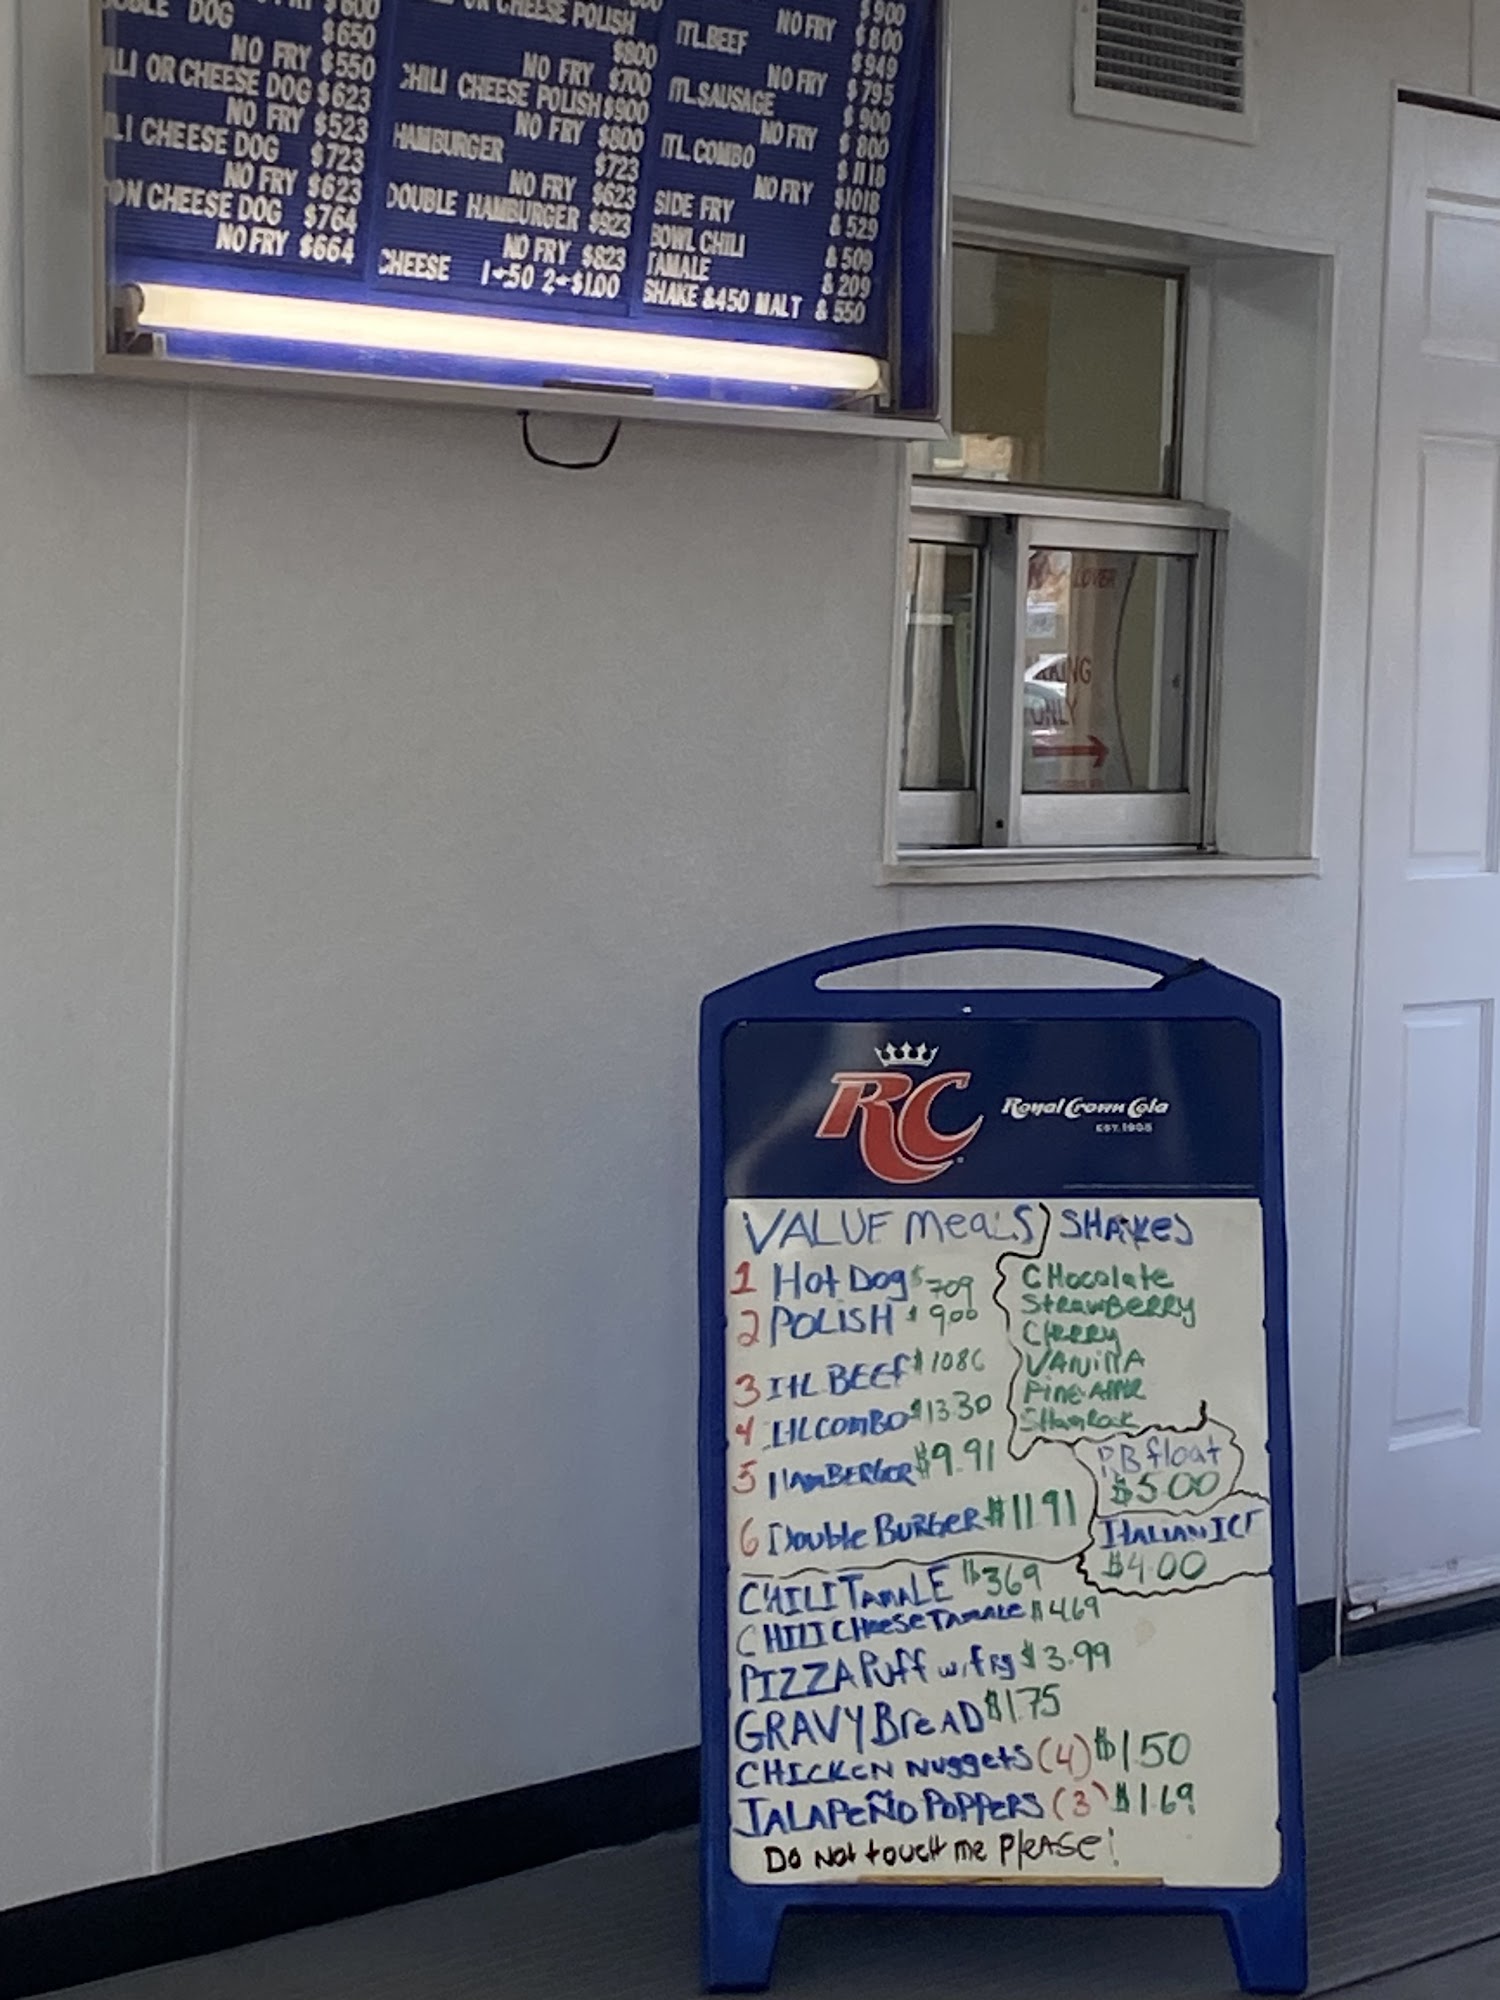 $600
DOG
$650
NO FRY $550
OR CHEESE DOG $623
NO FRY $523
CHEESE DOG $723
NO FRY $623
CHEESE DOG $764
NO FRY $664
OR CHEESE POLISH
$800
NO FRY $700
CHILI CHEESE POLISH $900
NO FRY $800
HAMBURGER $723
NO FRY $623
DOUBLE HAMBURGER $923
NO FRY $823
CHEESE 1-.50 2-$1.00
$900
NO FRY $800
ITL.BEEF $949
NO FRY $795
ITL.SAUSAGE $900
NO FRY $800
ITL.COMBO $1118
NO FRY $1018
SIDE FRY &529
BOWL CHILI &509
TAMALE &209
SHAKE &450 MALT &550
LOVER
ONLY
RC Royal Crown Cola
EST. 1905
VALUE MeaLS
1 Hot Dog $709
2 POLISH $900
3 ItL BEEf $1086
4 ItL COMBO $13.30
5 HAMBERGER $9.91
6 Double BURGER $11.91
SHAKES
CHocolate
StrawBERRY
CHERRY
VANillA
PiNEAPPlE
SHamRock
RB float
$5.00
ITALIAN ICE
$4.00
CHILI TAMALE $369
CHILI CHeeSe TAMALE $469
PIZZA Puff w.fry $3.99
GRAVY BreAD $1.75
CHICKEN NuggetS (4) $1.50
JALAPEÑO POPPERS (3) $1.69
Do Not toucH me PleASe!